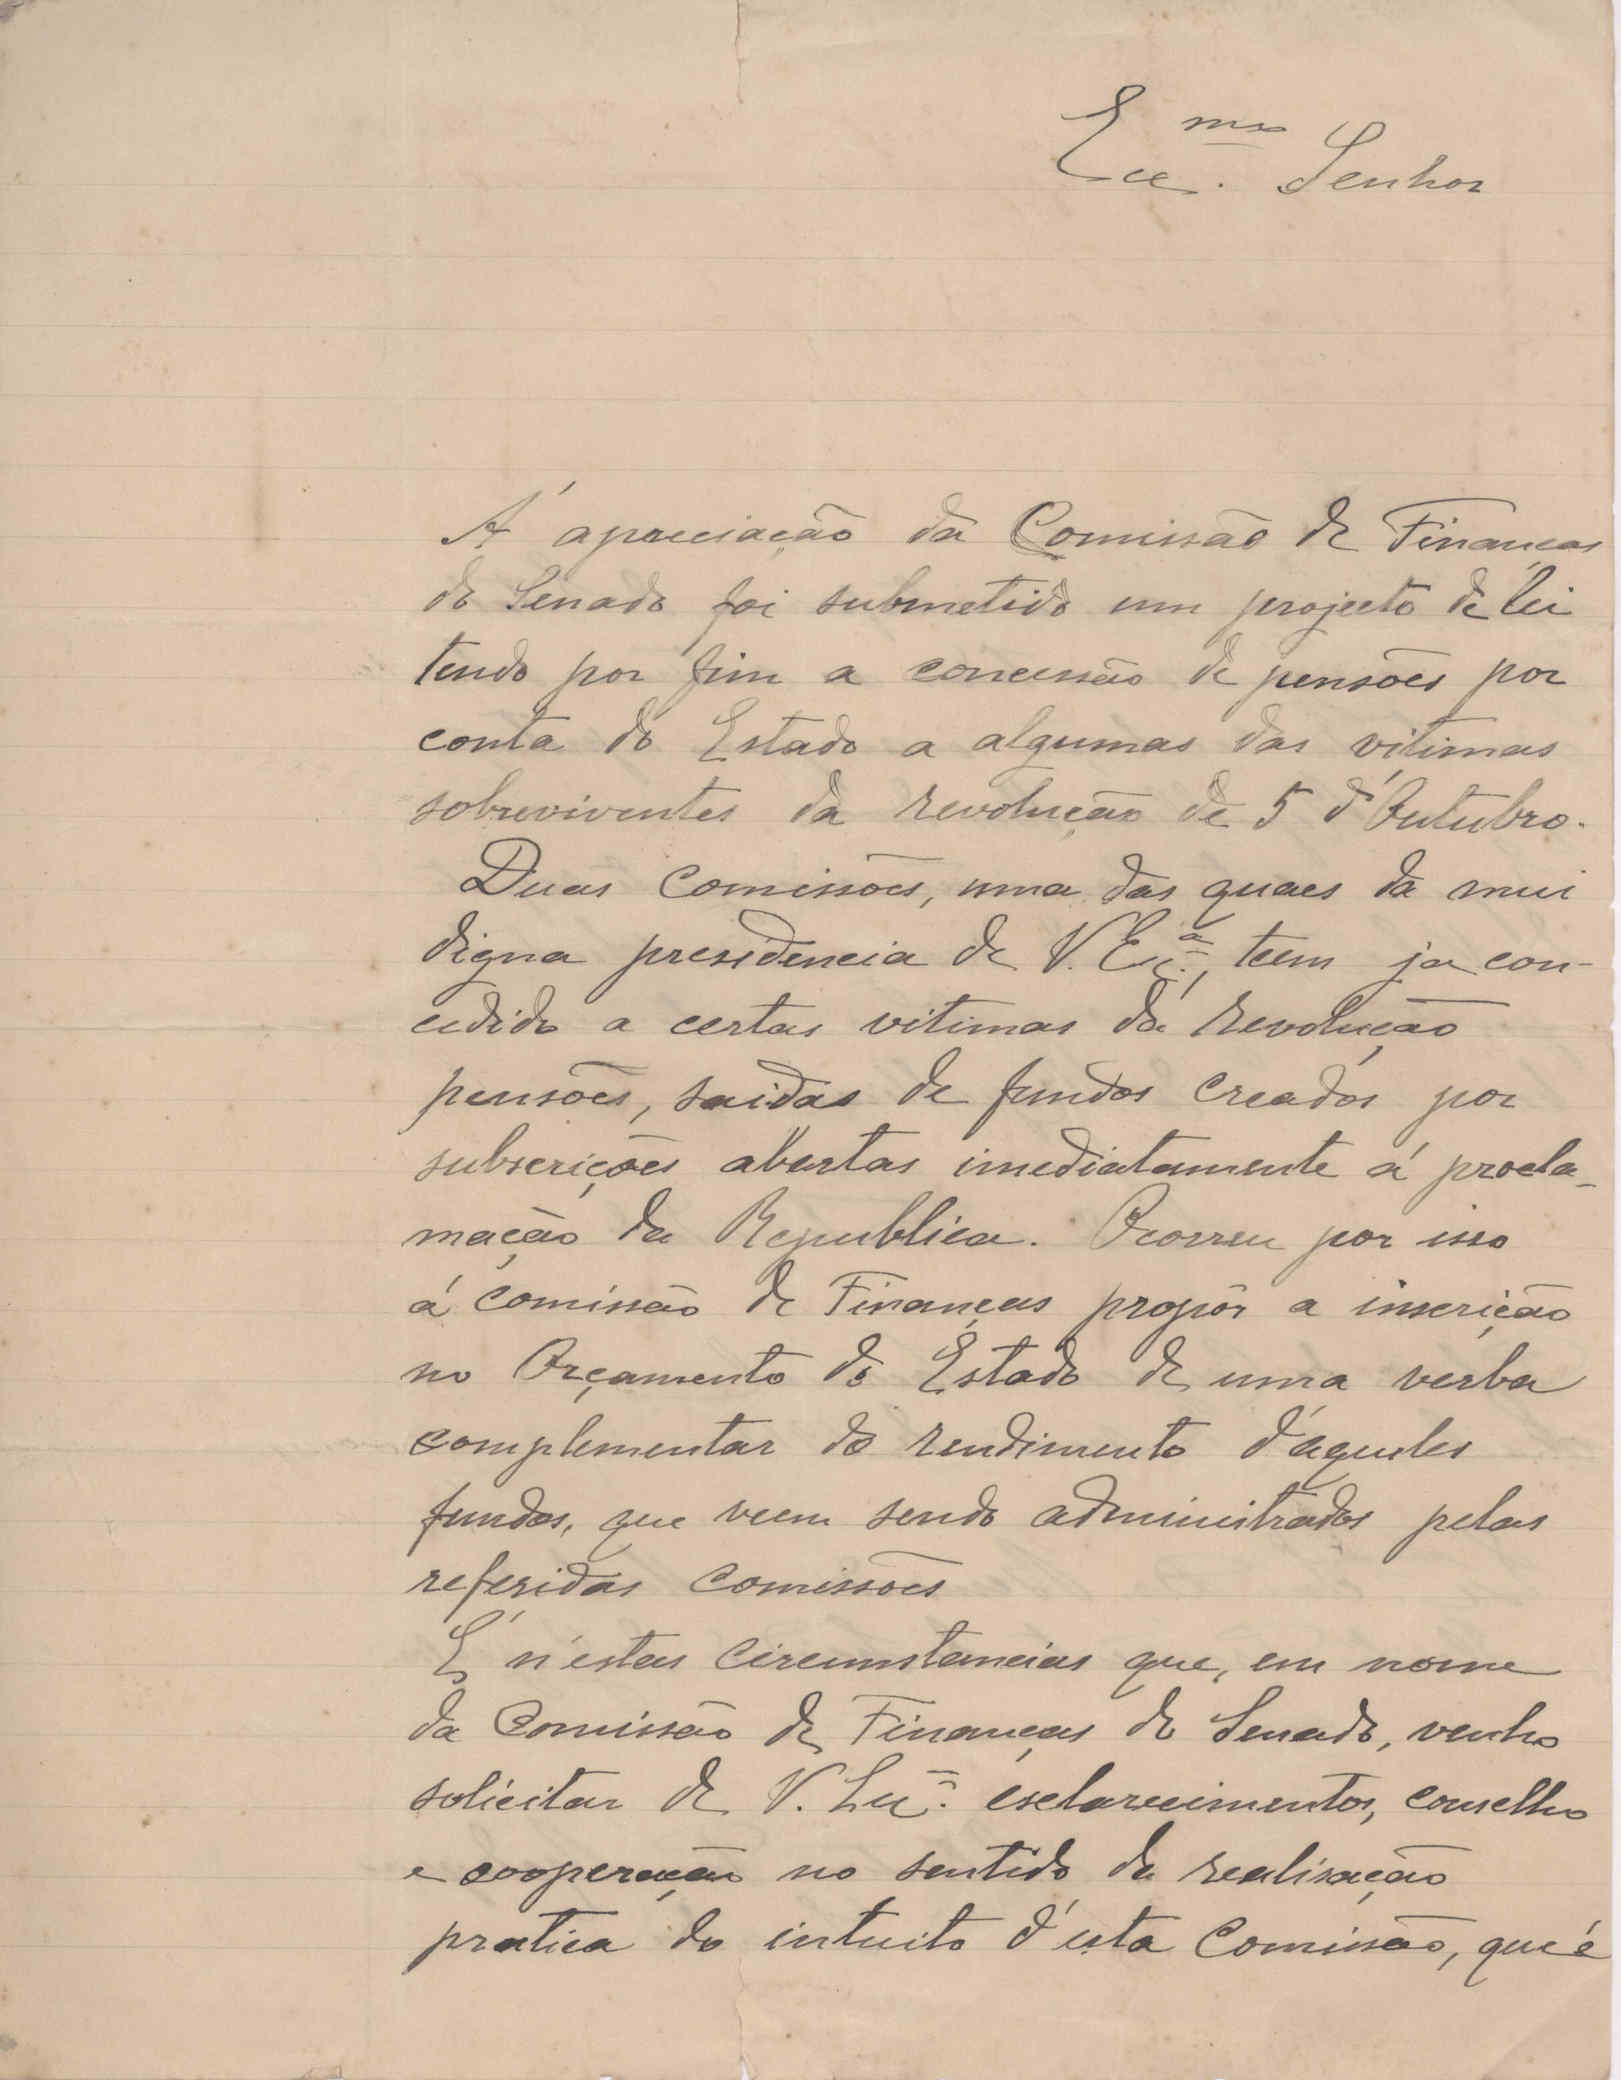 Exc.mo Senhor
Á apreciação da Comissão de Finanças
do Senado foi submetido um projecto de lei
tendo por fim a concessão de pensões por
conta do Estado a algumas das vitimas
sobreviventes da revolução de 5 d'Outubro.
Duas comissões, uma das quaes da mui
digna presidencia de V. Exc.ª, teem já con-
cedido a certas vitimas da revolução
pensões, saidas de fundos creados por
subscrições abertas imediatamente á procla-
mação da Republica. Ocorreu por isso
á comissão de Finanças propôr a inscrição
no Orçamento do Estado de uma verba
complementar do rendimento d'aqueles
fundos, que veem sendo administrados pelas
referidas comissões
É n'estas circumstancias que, em nome
da Comissão de Finanças do Senado, venho
solicitar de V. Exc.ª esclarecimentos, conselho
e cooperação no sentido da realisação
pratica do intuito d'esta Comissão, que é